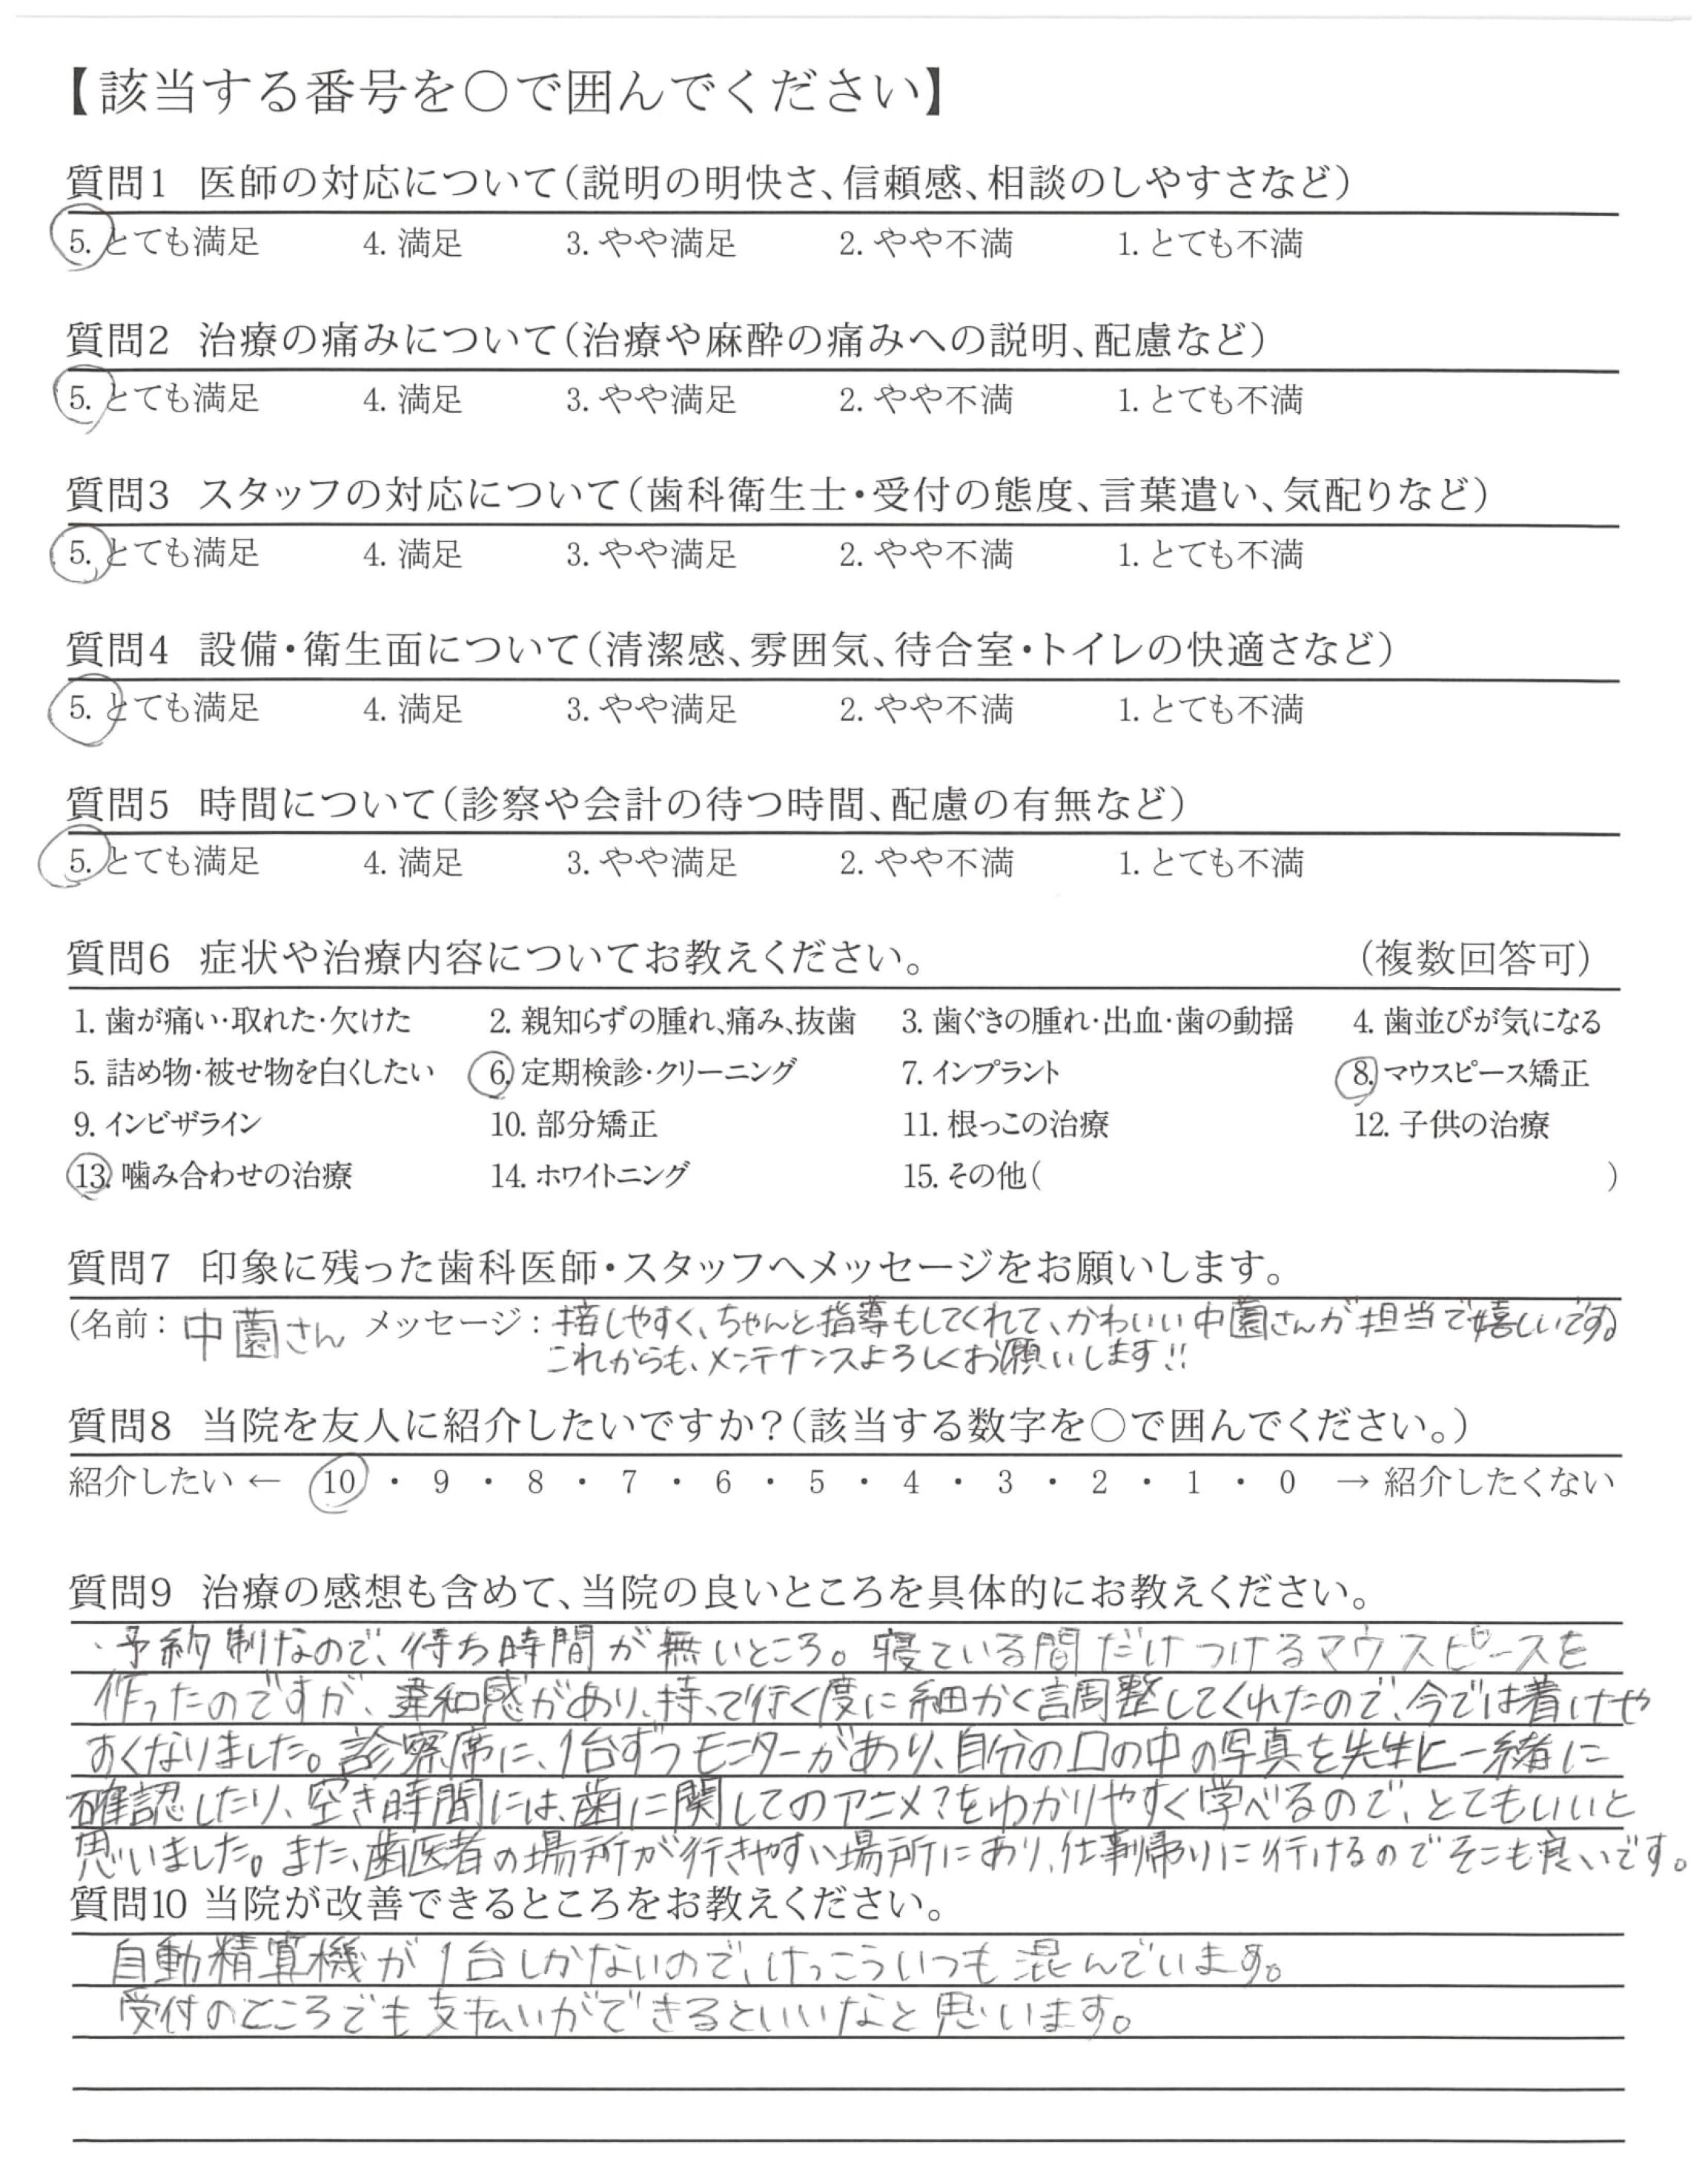 【該当する番号を○で囲んでください】
質問1 医師の対応について(説明の明快さ、信頼感、相談のしやすさなど)
5. とても満足 4. 満足 3. やや満足 2. やや不満 1. とても不満
質問2 治療の痛みについて(治療や麻酔の痛みへの説明、配慮など)
5. とても満足 4. 満足 3. やや満足 2. やや不満 1. とても不満
質問3 スタッフの対応について(歯科衛生士・受付の態度、言葉遣い、気配りなど)
5. とても満足 4. 満足 3. やや満足 2. やや不満 1. とても不満
質問4 設備・衛生面について(清潔感、雰囲気、待合室・トイレの快適さなど)
5. とても満足 4. 満足 3. やや満足 2. やや不満 1. とても不満
質問5 時間について(診察や会計の待つ時間、配慮の有無など)
5. とても満足 4. 満足 3. やや満足 2. やや不満 1. とても不満
質問6 症状や治療内容についてお教えください。 (複数回答可)
1. 歯が痛い・取れた・欠けた 2. 親知らずの腫れ、痛み、抜歯 3. 歯ぐきの腫れ・出血・歯の動揺 4. 歯並びが気になる
5. 詰め物・被せ物を白くしたい 6. 定期検診・クリーニング 7. インプラント 8. マウスピース矯正
9. インビザライン 10. 部分矯正 11. 根っこの治療 12. 子供の治療
13. 噛み合わせの治療 14. ホワイトニング 15. その他( )
質問7 印象に残った歯科医師・スタッフへメッセージをお願いします。
(名前: 中薗さん メッセージ: 接しやすく、ちゃんと指導もしてくれて、かわいい中薗さんが担当で嬉しいです。
これからも、メンテナンスよろしくお願いします!!
質問8 当院を友人に紹介したいですか?(該当する数字を○で囲んでください。)
紹介したい ← 10 ・ 9 ・ 8 ・ 7 ・ 6 ・ 5 ・ 4 ・ 3 ・ 2 ・ 1 ・ 0 → 紹介したくない
質問9 治療の感想も含めて、当院の良いところを具体的にお教えください。
・予約制なので、待ち時間が無いところ。寝ている間だけつけるマウスピースを
作ったのですが、違和感があり、持って行く度に細かく調整してくれたので、今では着けや
すくなりました。診察席に、1台ずつモニターがあり、自分の口の中の写真を先生と一緒に
確認したり、空き時間には、歯に関してのアニメ?をわかりやすく学べるので、とてもいいと
思いました。また、歯医者の場所が行きやすい場所にあり、仕事帰りに行けるのでそこも良いです。
質問10 当院が改善できるところをお教えください。
自動精算機が1台しかないので、けっこういつも混んでいます。
受付のところでも支払いができるといいなと思います。